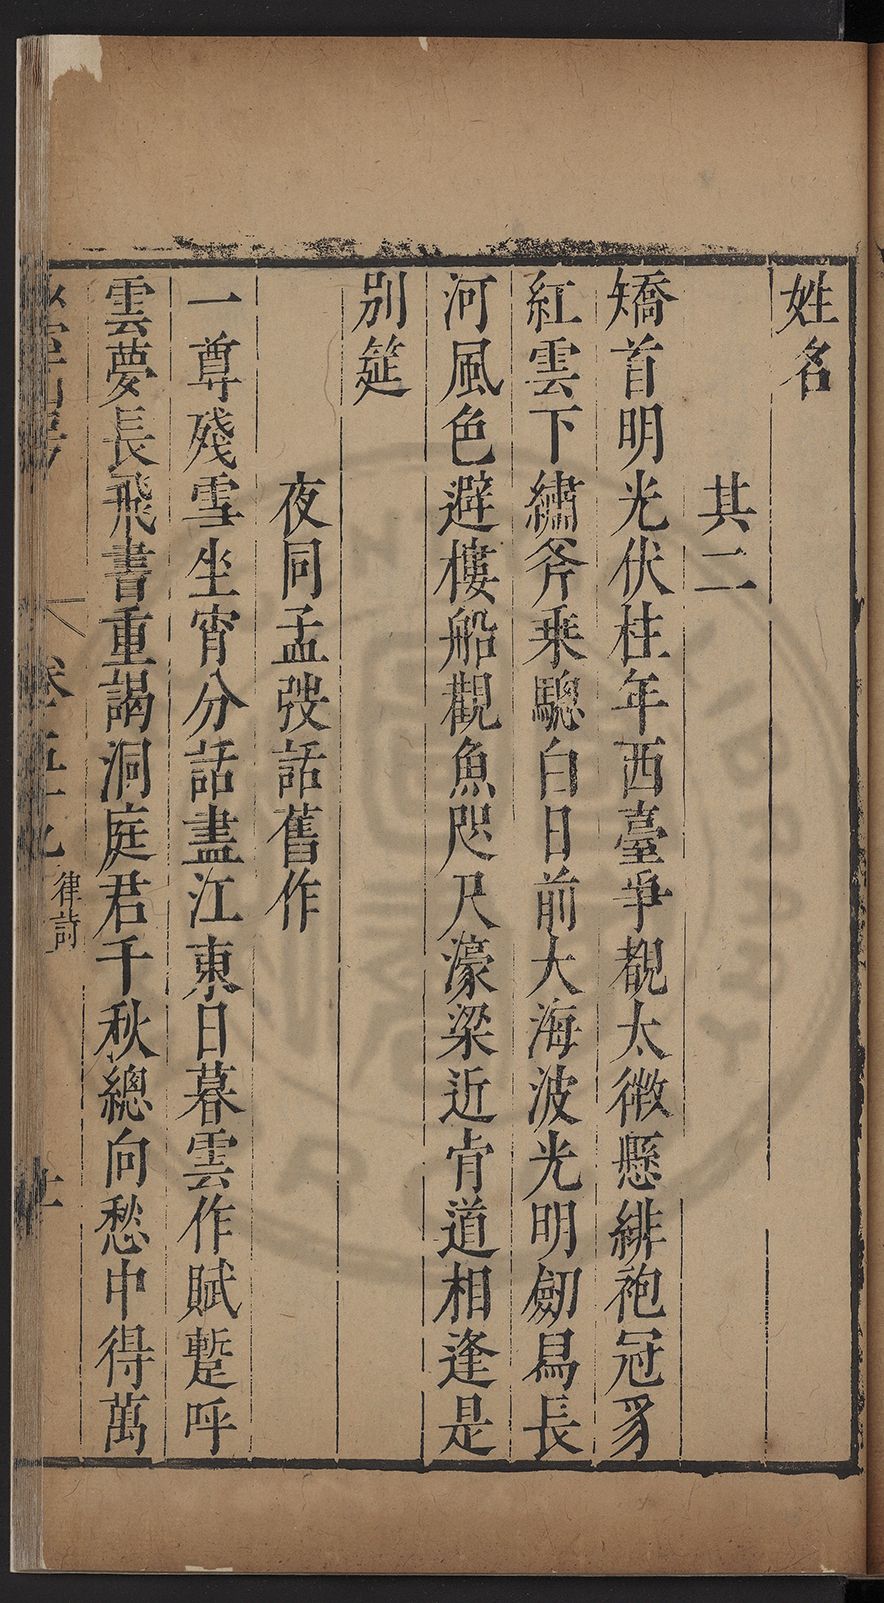 姓名
其二
矯首明光伏柱年西臺爭覩太微懸緋袍冠豸
紅雲下繡斧乘驄白日前大海波光明劒舄長
河風色避樓船觀魚咫尺濠梁近肯道相逢是
別筵
夜同孟弢話舊作
一尊殘雪坐宵分話盡江東日暮雲作賦蹔呼
雲夢長飛書重謁洞庭君千秋總向愁中得萬
律詩